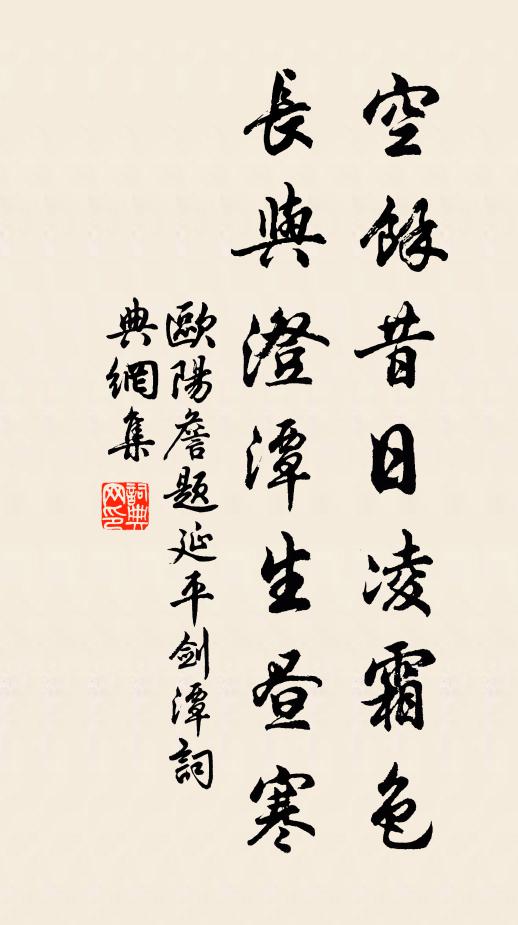 空餘昔日凌霜色
長與澄潭生晝寒
歐陽詹題延平劍潭詞
典網集
詞典
网印